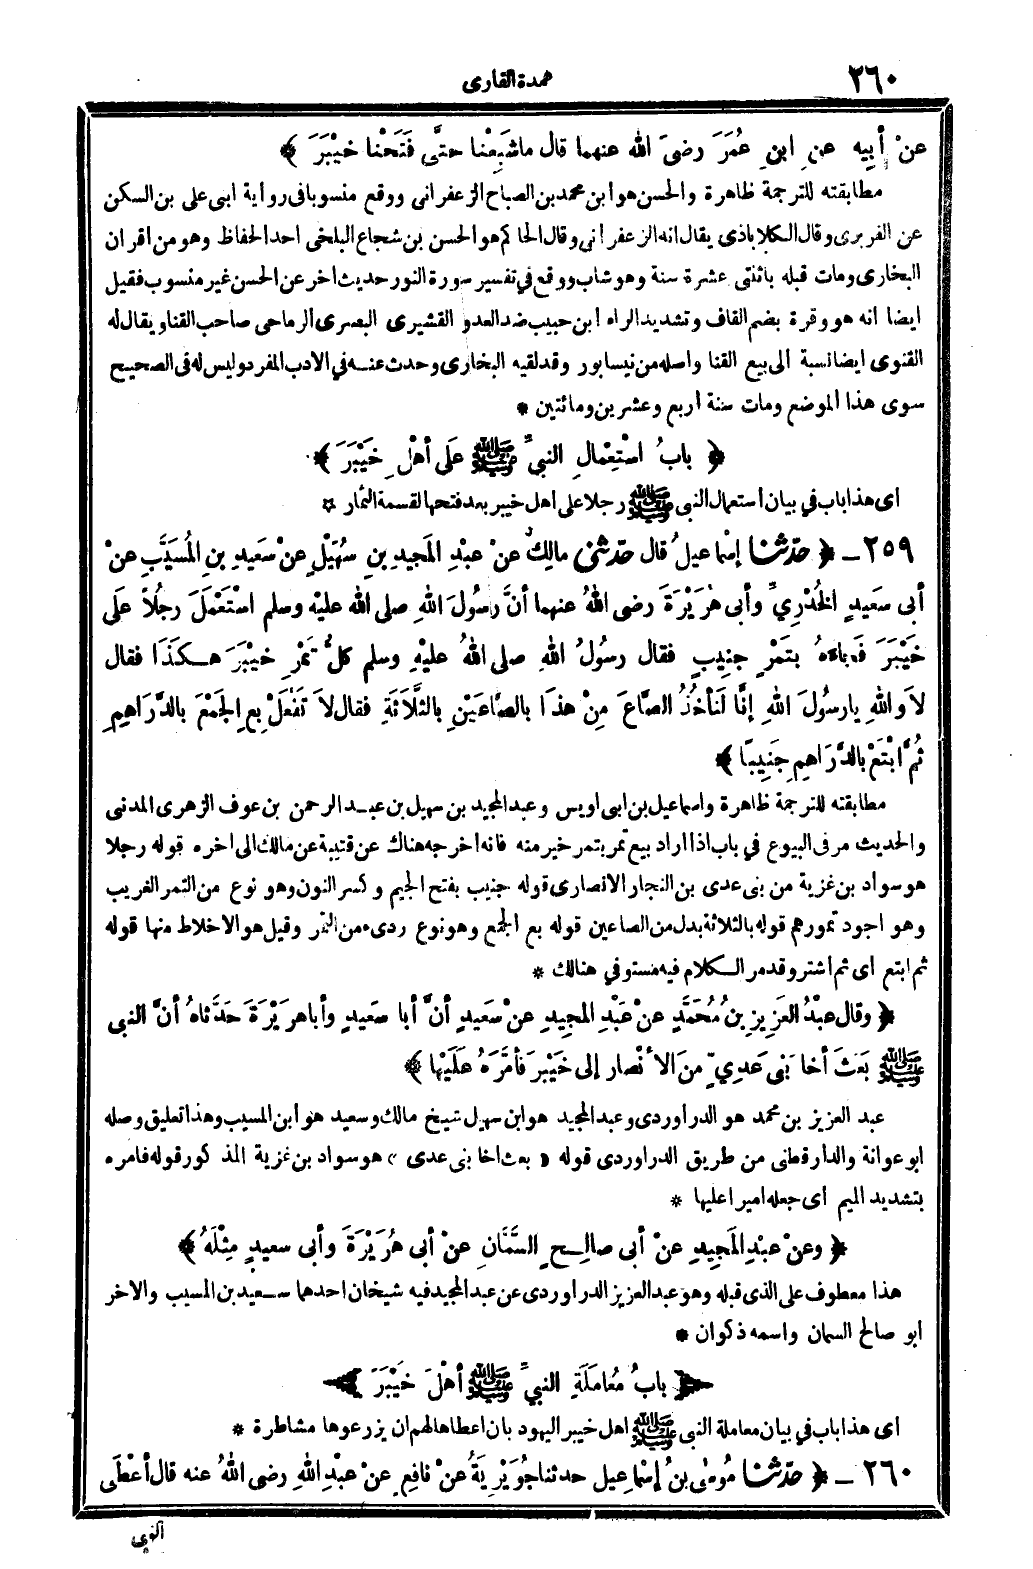 ٢٦٠
عمدة القارى
عنْ أبِيهِ عنِ ابنِ عُمَرَ رضىَ الله عنهما قال ماشَبِعْنا حتَّى فَتَحْنا خَيْبَرَ ﴾
مطابقته للترجمة ظاهرة والحسن هو ابن محمد بن الصباح الزعفرانى ووقع منسوبا فى رواية ابى على بن السكن
عن الفربرى وقال الكلاباذى يقال انه الزعفرانى وقال الحاكم هو الحسن بن شجاع البلخى احد الحفاظ وهو من اقران
البخارى ومات قبله باثنتى عشرة سنة وهو شاب ووقع في تفسير سورة النور حديث اخر عن الحسن غير منسوب فقيل
ايضا انه هو وقرة بضم القاف وتشديد الراء ابن حبيب ضد العدو القشيرى البصرى الرماحى صاحب القنا ويقال له
القنوى ايضا نسبة الى بيع القنا واصله من نيسابور وقد لقيه البخارى وحدث عنه في الادب المفرد وليس له فى الصحيح
سوى هذا الموضع ومات سنة اربع وعشرين ومائتين *
﴿ بابُ اسْتِعْمالِ النبىِّ ﷺ عَلَى أهْلِ خَيْبَرَ ﴾
اى هذا باب في بيان استعمال النبى ﷺ رجلا على اهل خيبر بعد فتحها لقسمة الثمار *
٢٥٩ ــ ﴿ حدّثنا إسْماعيلُ قال حدّثنى مالِكٌ عنْ عبْدِ المَجيدِ بنِ سُهَيْلٍ عنْ سَعيدِ بنِ المُسَيَّبِ عنْ
أبى سَعيدٍ الخُدْرِيِّ وأبى هُرَيْرَةَ رضى اللهُ عنهما أنَّ رسُولَ اللهِ صلى الله عليْه وسلم اسْتَعْمَلَ رجُلاً عَلَى
خَيْبَرَ فَجاءَهُ بتَمْرٍ جنِيبٍ فقال رسُولُ اللهِ صلى اللهُ عليْهِ وسلم كلُّ تمْرِ خيْبَرَ هكَذَا فقال
لاَ واللهِ يا رسُولَ اللهِ إنَّا لَنأخُذُ الصَّاعَ مِنْ هذَا بالصَّاعَيْنِ بالثَّلاَثَةِ فقال لاَ تَفْعَلْ بِعِ الجَمْعَ بالدَّرَاهِمِ
ثُمَّ ابْتَعْ بالدَّرَاهِمِ جَنِيبًا ﴾
مطابقته للترجمة ظاهرة واسماعيل بن ابى اويس وعبد المجيد بن سهيل بن عبد الرحمن بن عوف الزهرى المدنى
والحديث مر فى البيوع في باب اذا اراد بيع تمر بتمر خير منه فانه اخرجه هناك عن قتيبة عن مالك الى اخره قوله رجلا
هو سواد بن غزية من بنى عدى بن النجار الانصارى قوله جنيب بفتح الجيم وكسر النون وهو نوع من التمر الغريب
وهو اجود تمورهم قوله بالثلاثة بدل من الصاعين قوله بع الجمع وهو نوع ردىء من التمر وقيل هو الاخلاط منها قوله
ثم ابتع اى ثم اشتر وقد مر الكلام فيه مستوفي هنالك *
﴿ وقال عبْدُ العَزيزِ بنُ مُحَمَّدٍ عنْ عَبْدِ المجِيدِ عنْ سَعيدٍ أنَّ أبا سَعيدٍ وأبا هريْرَةَ حَدَّثاهُ أنَّ النبى
ﷺ بَعَثَ أخا بَنى عَدِيٍّ مِنَ الأنْصارِ إلى خَيْبَرَ فأمَّرَهُ عَلَيْها ﴾
عبد العزيز بن محمد هو الدراوردى وعبد المجيد هو ابن سهيل شيخ مالك وسعيد هو ابن المسيب وهذا تعليق وصله
ابو عوانة والدارقطنى من طريق الدراوردى قوله « بعث اخا بنى عدى » هو سواد بن غزية المذكور قوله فامره
بتشديد الميم اى جعله اميرا عليها *
﴿ وعنْ عبْدِ المَجِيدِ عنْ أبى صالِحٍ السَّمَّانِ عنْ أبى هُرَيْرَةَ وأبى سعيدٍ مِثْلَهُ ﴾
هذا معطوف على الذى قبله وهو عبد العزيز الدراوردى عن عبد المجيد فيه شيخان احدهما سعيد بن المسيب والاخر
ابو صالح السمان واسمه ذكوان *
﴿ بابُ مُعامَلَةِ النبىِّ ﷺ أهْلَ خَيْبَرَ ﴾
اى هذا باب في بيان معاملة النبى ﷺ اهل خيبر اليهود بان اعطاها لهم ان يزرعوها مشاطرة *
٢٦٠ ــ ﴿ حدّثنا مُوسى بنُ إسْماعيل حدثنا جُوَيْرِيَةُ عنْ نافِعٍ عنْ عبْدِ اللهِ رضى اللهُ عنه قال أعْطَى
النبى